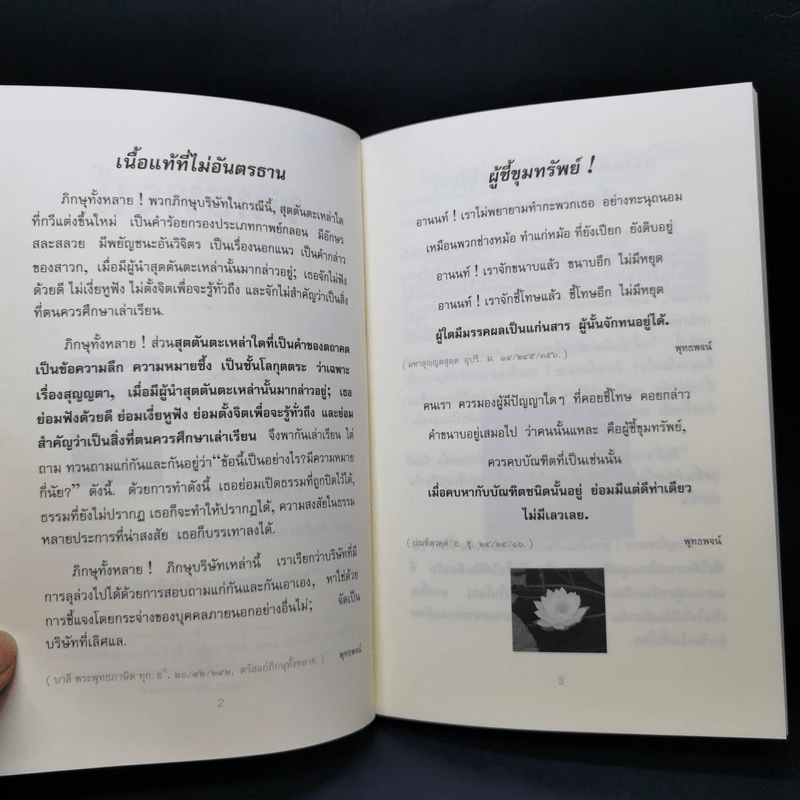 เนื้อแท้ที่ไม่อันตรธาน
ภิกษุทั้งหลาย ! พวกภิกษุบริษัทในกรณีนี้, สุตตันตะเหล่าใด
ที่กวีแต่งขึ้นใหม่ เป็นคำร้อยกรองประเภทกาพย์กลอน มีอักษร
สละสลวย มีพยัญชนะอันวิจิตร เป็นเรื่องนอกแนว เป็นคำกล่าว
ของสาวก, เมื่อมีผู้นำสุตตันตะเหล่านั้นมากล่าวอยู่; เธอจักไม่ฟัง
ด้วยดี ไม่เงี่ยหูฟัง ไม่ตั้งจิตเพื่อจะรู้ทั่วถึง และจักไม่สำคัญว่าเป็นสิ่ง
ที่ตนควรศึกษาเล่าเรียน.
ภิกษุทั้งหลาย ! ส่วนสุตตันตะเหล่าใดที่เป็นคำของตถาคต
เป็นข้อความลึก ความหมายซึ้ง เป็นชั้นโลกุตตระ ว่าเฉพาะ
เรื่องสุญญตา, เมื่อมีผู้นำสุตตันตะเหล่านั้นมากล่าวอยู่; เธอ
ย่อมฟังด้วยดี ย่อมเงี่ยหูฟัง ย่อมตั้งจิตเพื่อจะรู้ทั่วถึง และย่อม
สำคัญว่าเป็นสิ่งที่ตนควรศึกษาเล่าเรียน จึงพากันเล่าเรียน ไต่
ถาม ทวนถามแก่กันและกันอยู่ว่า“ข้อนี้เป็นอย่างไร?มีความหมาย
กี่นัย?” ดังนี้. ด้วยการทำดังนี้ เธอย่อมเปิดธรรมที่ถูกปิดไว้ได้,
ธรรมที่ยังไม่ปรากฏ เธอก็จะทำให้ปรากฏได้, ความสงสัยในธรรม
หลายประการที่น่าสงสัย เธอก็บรรเทาลงได้.
ภิกษุทั้งหลาย ! ภิกษุบริษัทเหล่านี้ เราเรียกว่าบริษัทที่มี
การลุล่วงไปได้ด้วยการสอบถามแก่กันและกันเอาเอง, หาใช่ด้วย
การชี้แจงโดยกระจ่างของบุคคลภายนอกอย่างอื่นไม่; จัดเป็น
บริษัทที่เลิศแล.
พุทธพจน์
( บาลี พระพุทธภาษิต ทุก. อํ. ๒๐/๙๒/๒๙๒, ตรัสแก่ภิกษุทั้งหลาย )
2
ผู้ชี้ขุมทรัพย์ !
อานนท์ ! เราไม่พยายามทำกะพวกเธอ อย่างทะนุถนอม
เหมือนพวกช่างหม้อ ทำแก่หม้อ ที่ยังเปียก ยังดิบอยู่
อานนท์ ! เราจักขนาบแล้ว ขนาบอีก ไม่มีหยุด
อานนท์ ! เราจักชี้โทษแล้ว ชี้โทษอีก ไม่มีหยุด
ผู้ใดมีมรรคผลเป็นแก่นสาร ผู้นั้นจักทนอยู่ได้.
( มหาสุญฺญตสุตฺต อุปริ. ม. ๑๔/๒๔๕/๓๕๖. ) พุทธพจน์
คนเรา ควรมองผู้มีปัญญาใดๆ ที่คอยชี้โทษ คอยกล่าว
คำขนาบอยู่เสมอไป ว่าคนนั้นแหละ คือผู้ชี้ขุมทรัพย์,
ควรคบบัณฑิตที่เป็นเช่นนั้น
เมื่อคบหากับบัณฑิตชนิดนั้นอยู่ ย่อมมีแต่ดีท่าเดียว
ไม่มีเลวเลย.
( ปณฺฑิตวคฺค ธ. ขุ. ๒๕/๒๕/๑๖. ) พุทธพจน์
3